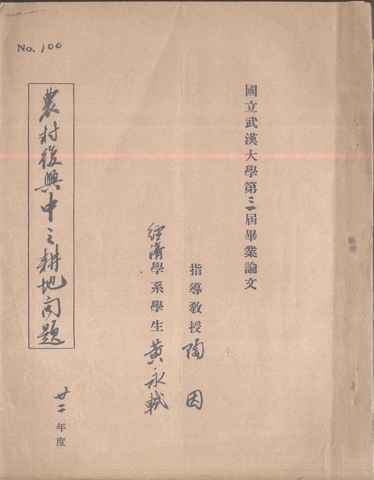 No. 100
國立武漢大學第三屆畢業論文
指導教授 陶因
經濟學系學生 黃永軾
農村復興中之耕地問題
廿二年度